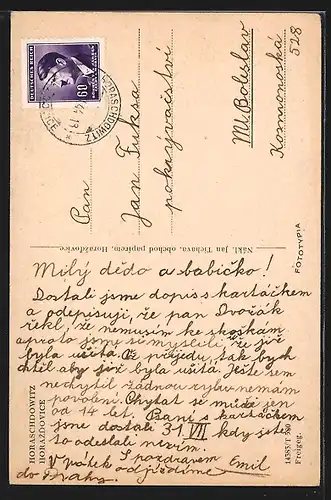 DEUTSCHES REICH
60
BÖHMEN UND MÄHREN
HORASCHDOWITZ
Pan
Jan Fuksa
pokryvačství
Ml. Boleslav
Komonoská
528
Nákl. Jan Tichava, obchod papírem, Horažďovice
FOTOTYPIA
Milý dědo a babičko!
Dostali jsme dopis s kartáčkem
a odepisuji, že pan Dvořák
řekl, že nemusím ke skoškám
a proto jsme si mysleli že již
byla ušitá. Až přijedu, tak bych
chtěl aby již byla ušitá. Ještě sem
nechytil žádnou rybu nemám
povolení. Chytat se může jen
od 14 let. Psaní s kartáčkem
jsme dostali 31 VII kdy jste
to odeslali nevím.
S pozdravem Emil
V pátek odjíždíme
do Prahy.
HORASCHDOWITZ
HORAŽĎOVICE
14385/T 380
Freigeg.